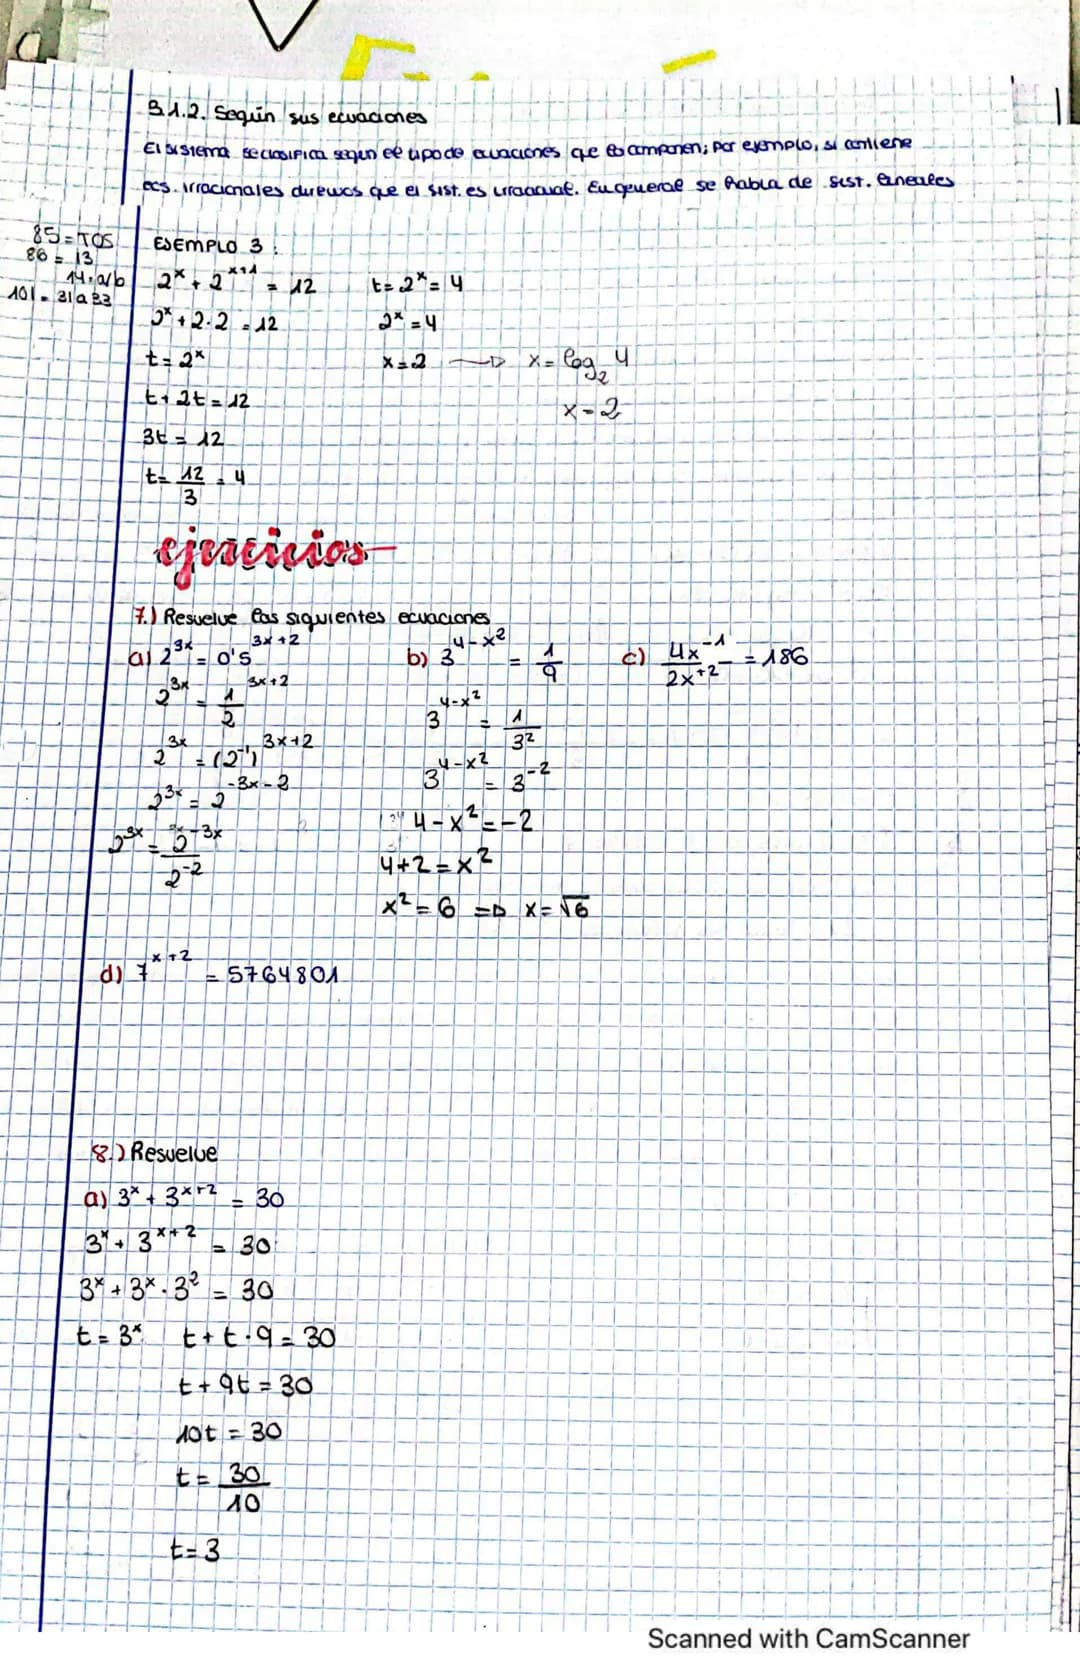 3.1.2. Según sus ecuaciones
El sistema se clasifica segun el tipo de ecuaciones que lo componen; por ejemplo, si contiene
ecs. irracionales diremos que el sist. es irracional. En general se habla de sist. lineales
85 = TOS
86 = 13
14. a/b
101 = 31 a 33
EJEMPLO 3:
2^x + 2^x+1 = 12
2^x + 2·2 = 12
t = 2^x
t + 2t = 12
3t = 12
t = 12/3 = 4
t = 2^x = 4
2^x = 4
x = 2 → x = log₂ 4
x = 2
ejercicios
7.) Resuelve las siguientes ecuaciones
a) 2^3x = 0'5^3x+2
2^3x = 1/2^3x+2
2^3x = (2^-1)^3x+2
2^3x = 2^-3x-2
2^3x = 2^-3x/2^-2
b) 3^4-x² = 1/9
3^4-x² = 1/3²
3^4-x² = 3^-2
4-x² = -2
4+2 = x²
x² = 6 => x = √6
c) 4x^-1/2x^+2 = 186
d) 7^x+2 = 5764801
8.) Resuelve
a) 3^x + 3^x+2 = 30
3^x + 3^x+2 = 30
3^x + 3^x · 3² = 30
t = 3^x t + t·9 = 30
t + 9t = 30
10t = 30
t = 30/10
t = 3
Scanned with CamScanner